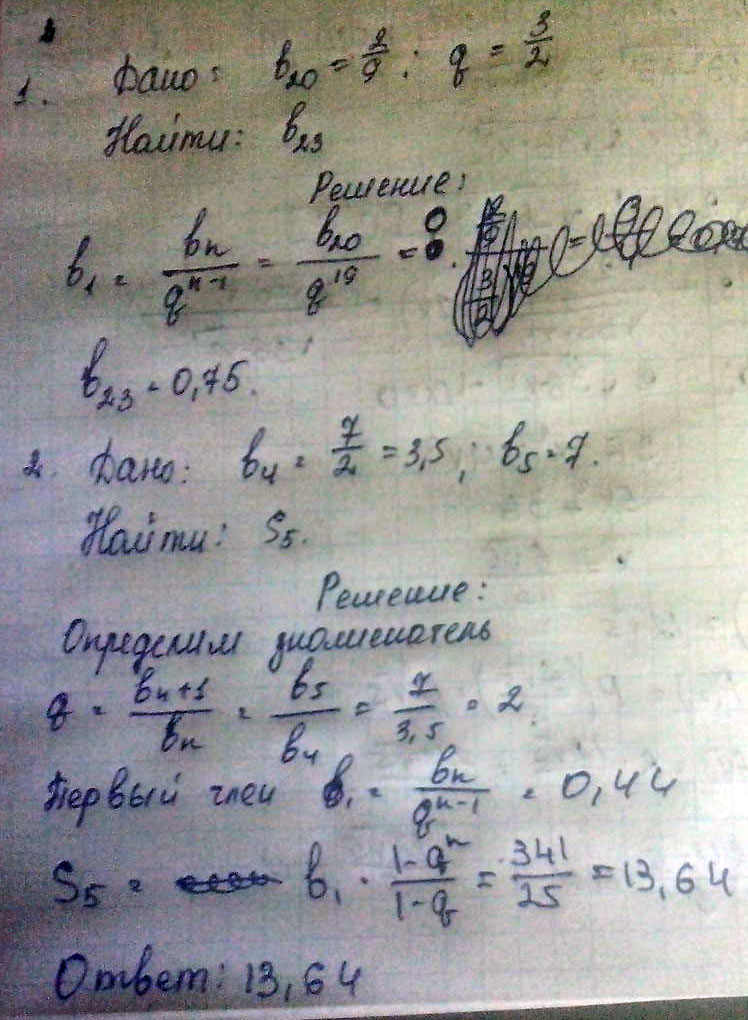 1. Дано: b₂₀ = 2/9; q = 3/2
Найти: b₂₃
Решение:
b₁ = bₙ/qⁿ⁻¹ = b₂₀/q¹⁹ =
b₂₃ = 0,75.
2. Дано: b₄ = 7/2 = 3,5; b₅ = 7.
Найти: S₅.
Решение:
Определим знаменатель
q = bₙ₊₁/bₙ = b₅/b₄ = 7/3,5 = 2.
Первый член b₁ = bₙ/qⁿ⁻¹ = 0,44
S₅ = b₁ · (1-qⁿ)/(1-q) = 341/25 = 13,64
Ответ: 13,64